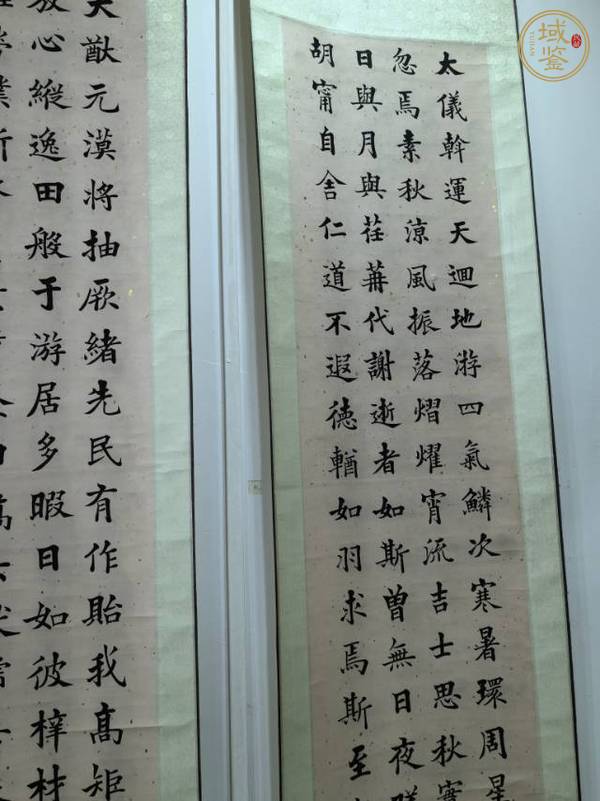 太儀幹運天迴地游四氣鱗次寒暑環周星
忽焉素秋涼風振落熠燿宵流吉士思秋寔
日與月與荏苒代謝逝者如斯曾無日夜嗟
胡甯自舍仁道不遐德輶如羽求焉斯至
大猷元漠將抽厥緒先民有作貽我高矩
放心縱逸田般于游居多暇日如彼梓材
域鉴
YUJIAN